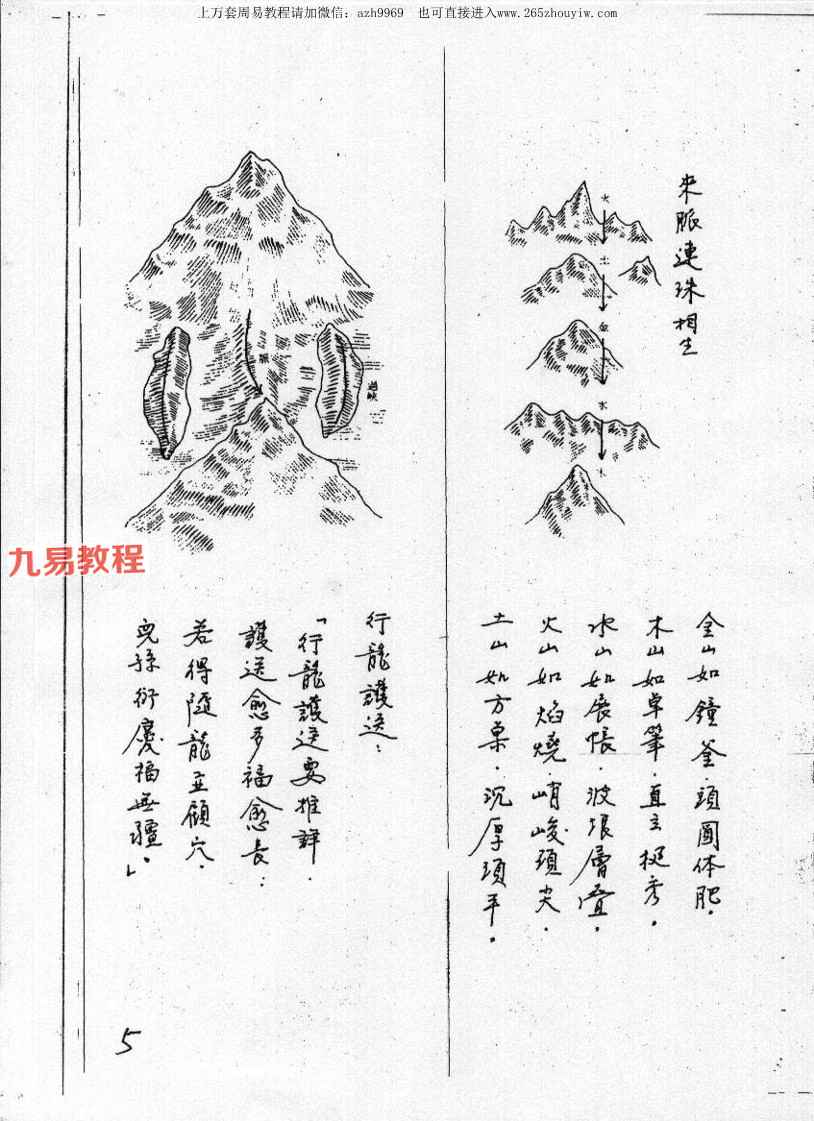 上万套周易教程请加微信：azh9969　也可直接进入www.265zhouyiw.com
來脈連珠相生
火
土
金
水
木
金山如鐘釜．頭圓体肥．
木山如卓筆．直立挺秀．
水山如展帳．波浪層疊．
火山如焰燒．峭峻頭尖．
土山如方桌．沉厚頂平．
過峽
行龍護送：
「行龍護送要推詳．
護送愈多福愈長：
若得隨龍並顧穴．
兒孫衍慶福無疆．」
九易教程
5